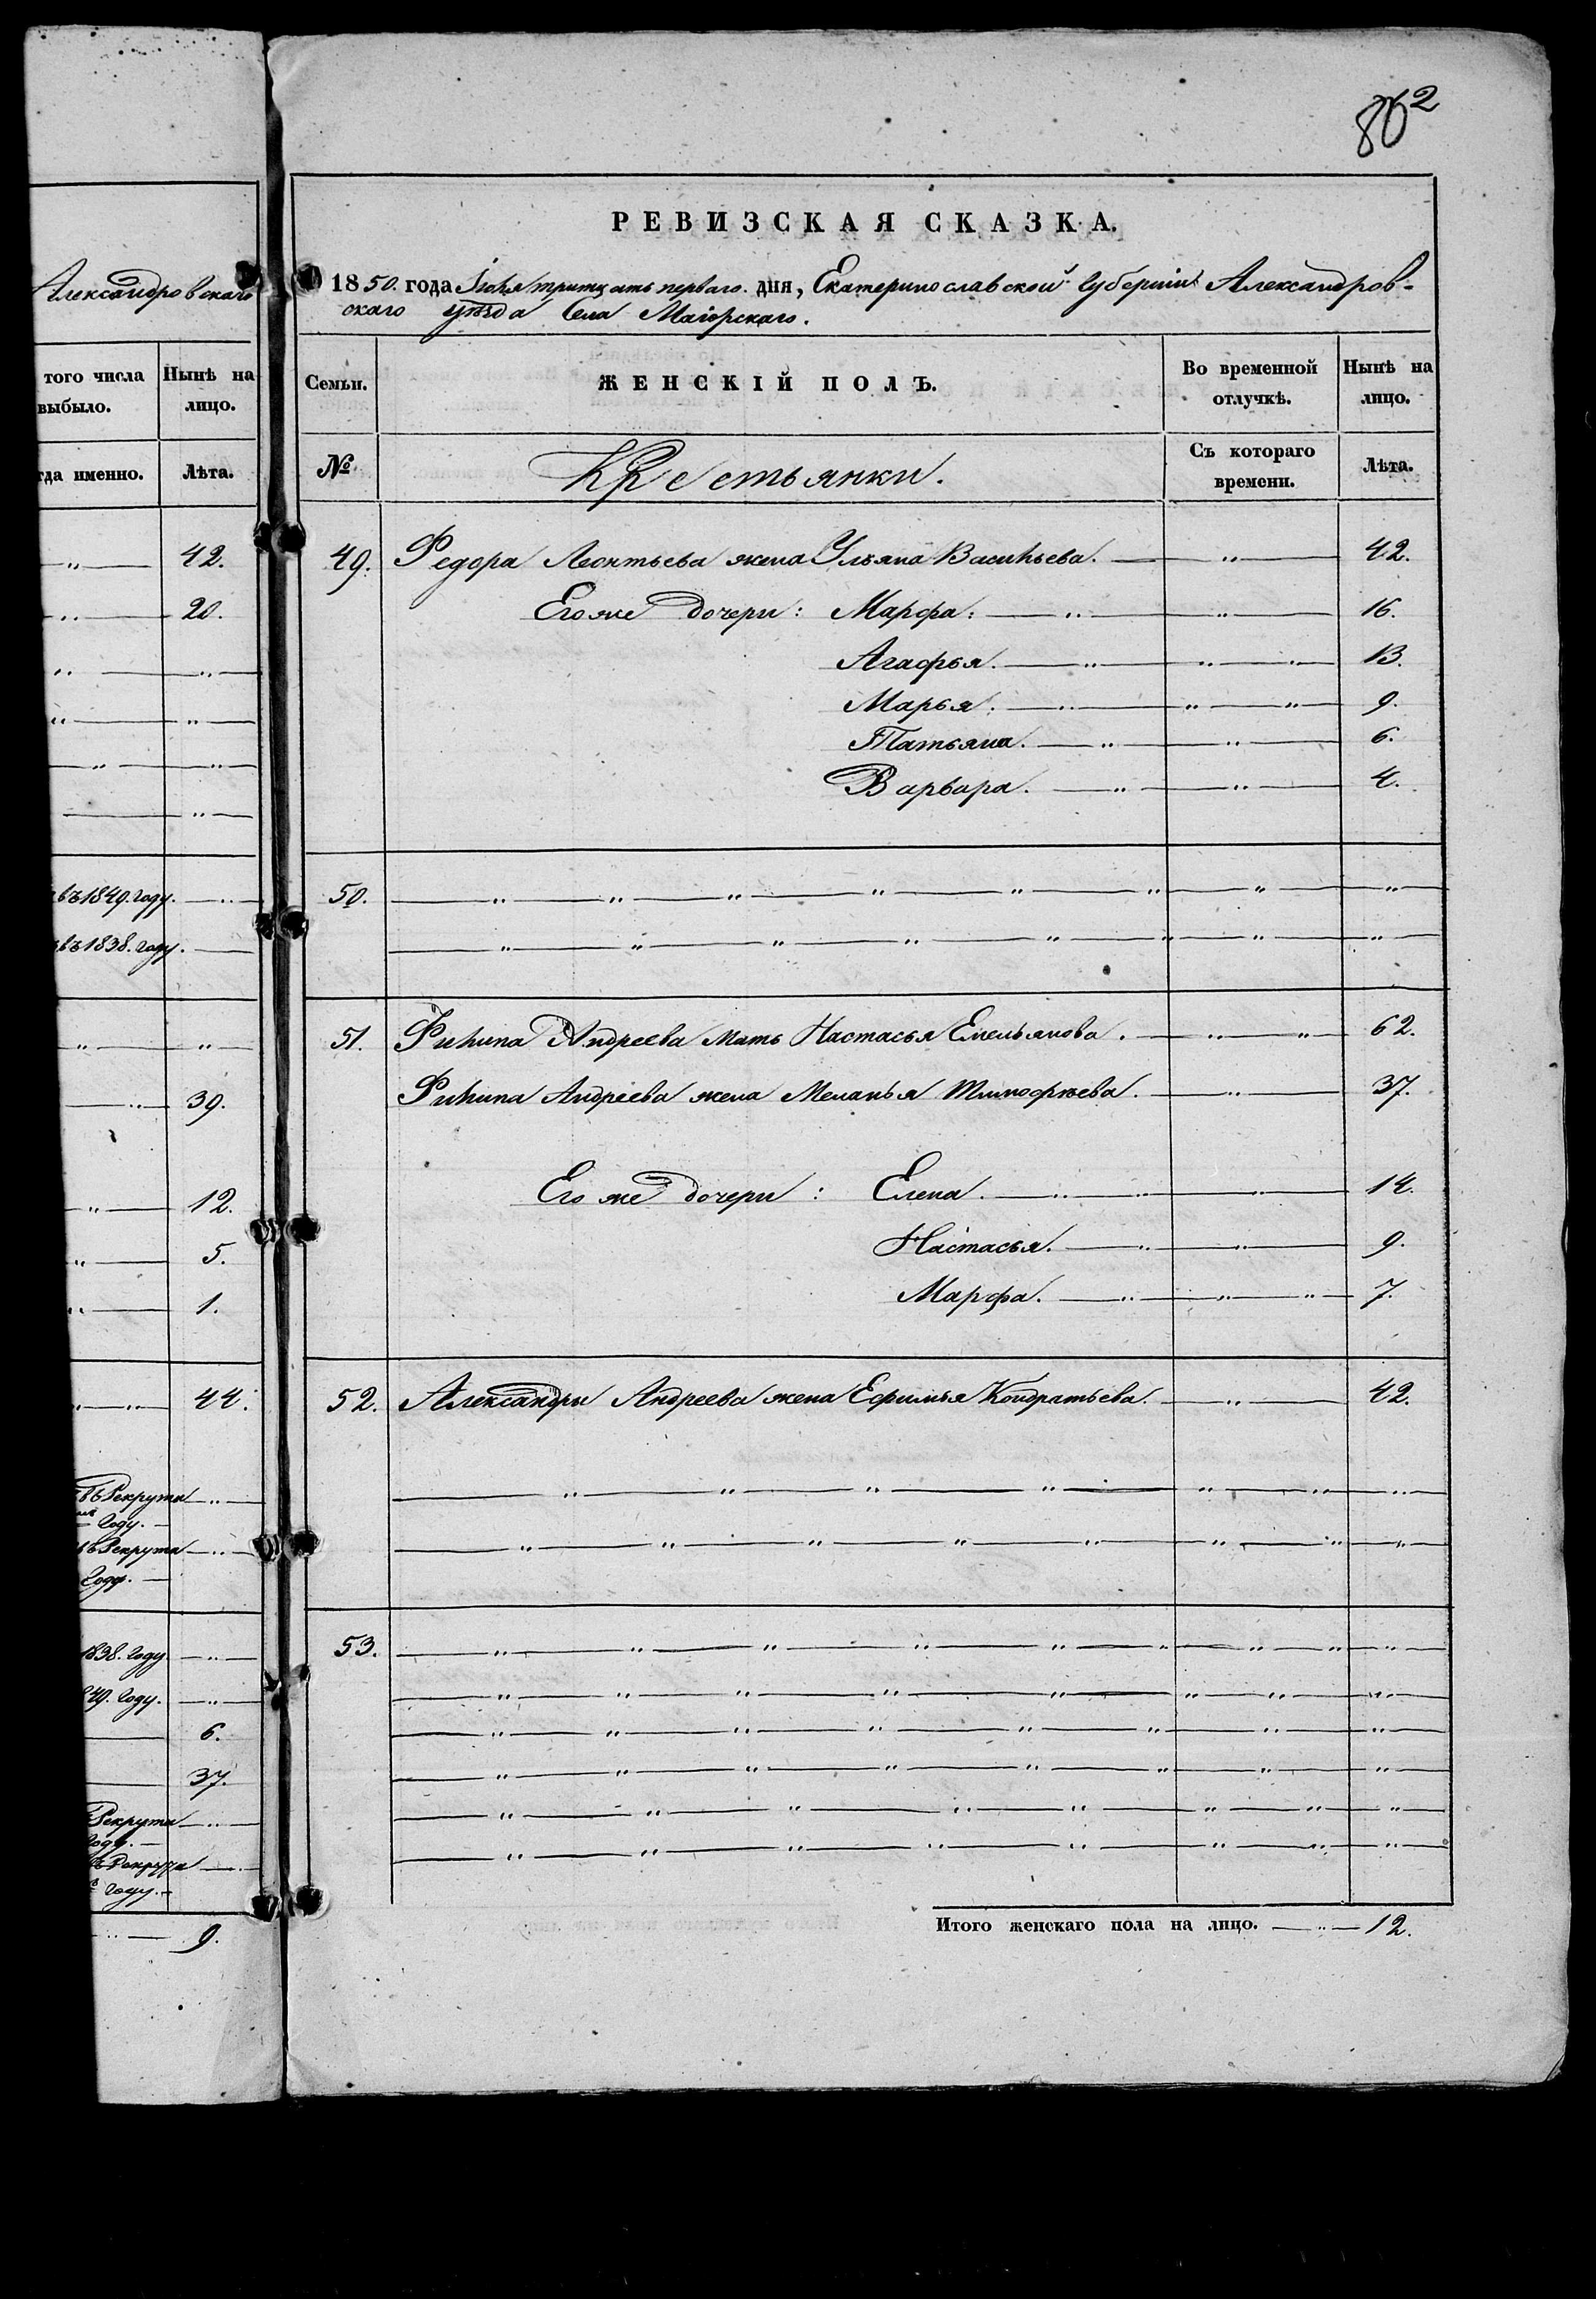 862
Александровскаго
того числа
выбыло.
Нынѣ на
лицо.
гда именно.
Лѣта.
42.
20.
въ 1849. году.
въ 1838. году.
39.
12.
5.
1.
44.
въ Рекрута
году.
въ Рекрута
году.
1838. году
849. году.
6.
37.
Рекрута
году.
Рекрута
году.
9.
РЕВИЗСКАЯ СКАЗКА.
1850. года Іюля тритцать перваго. дня, Екатеринославской Губерніи Александров-
скаго уѣзда Села Маіорскаго.
Семьи.
ЖЕНСКІЙ ПОЛЪ.
Во временной
отлучкѣ.
Нынѣ на
лицо.
№
Крестьянки.
Съ котораго
времени.
Лѣта.
49. Федора Леонтьева жена Ульяна Васильева. 42.
Его же дочери: Марфа. 16.
Агафья. 13.
Марья. 9.
Татьяна. 6.
Варвара. 4.
50.
51. Филипа Андреева мать Настасья Емельянова. 62.
Филипа Андреева жена Меланья Тимофѣева. 37.
Его же дочери: Елена. 14.
Настасья. 9.
Марфа. 7.
52. Александры Андреева жена Ефимья Кондратьева. 42.
53.
Итого женскаго пола на лицо. 12.